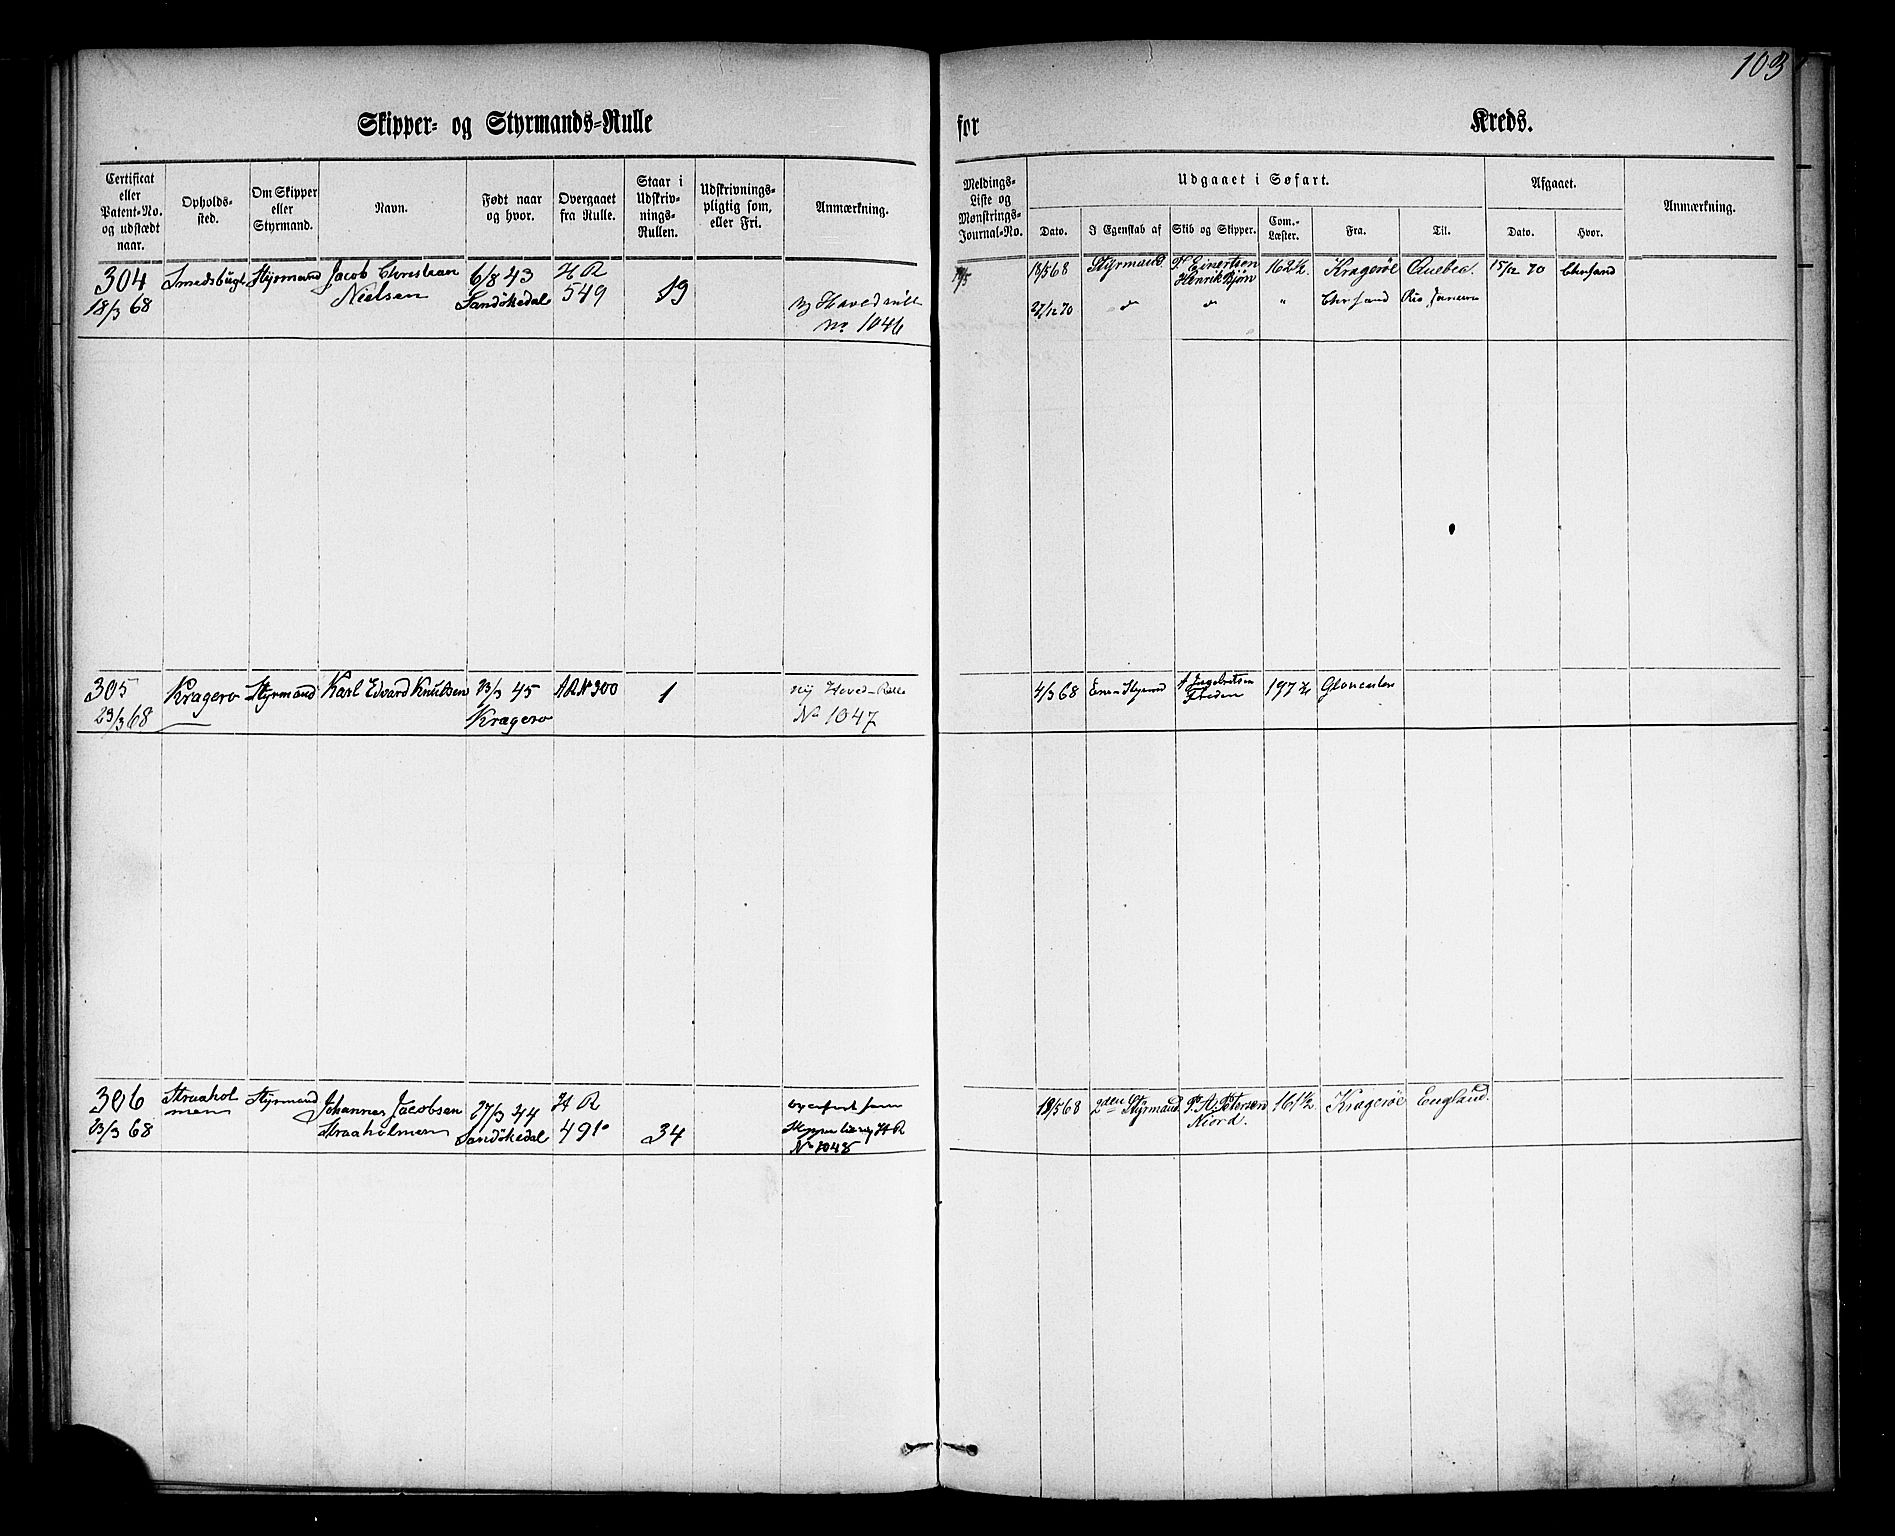 103
Skipper- og Styrmands-Rulle for Kreds.
Certificat eller Patent-No. og udstædt naar.
Opholds-sted.
Om Skipper eller Styrmand.
Navn.
Født naar og hvor.
Overgaaet fra Rulle.
Staar i Udskriv-nings-Rullen.
Udskrivnings-pligtig som, eller Fri.
Anmærkning.
Meldings-Liste og Mønstrings-Journal-No.
Udgaaet i Søfart.
Dato.
I Egenskab af
Skib og Skipper.
Com.-Læster.
Fra.
Til.
Afgaaet.
Dato.
Hvor.
Anmærkning.
304 Smedsbugt Styrmand Jacob Christian 6/8 43 H R 19
18/3 68 Nielsen Sandøkedal 549
Ny Hovedrulle
No 1046
18/5 68 Styrmand Einertsen 162½ Kragerøe Quebec. 15/12 70 Chrsand
Henrik Bjørn
27/12 70 " Chrsand Rio Janeiro
305 Kragerø Styrmand Karl Edvard Knutsen 23/3 45 A R No 300 1 ny Hoved-Rulle
23/3 68 Kragerø No 1047
4/3 68 A Ingebretsen 197 Gloucester
Freden
306 Straahol Styrmand Johannes Jacobsen 27/3 44 H R
men
23/3 68 Straaholmen Sandøkedal 491 34
overført som
Skipper til ny H R
No 1048
18/5 68 2den Styrmand A. Petersen 161½ Kragerøe England.
Niord.